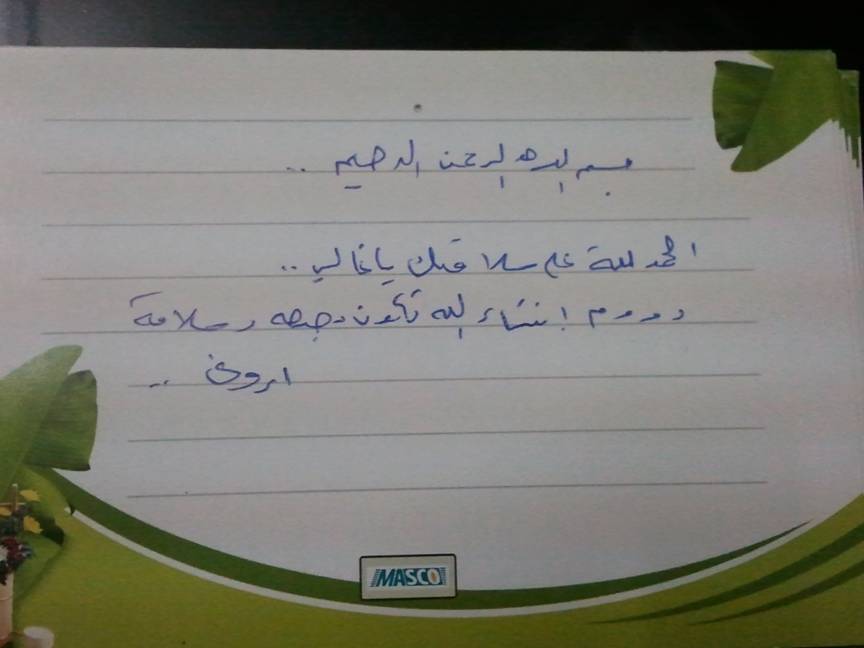 بسم الله الرحمن الرحيم ..
الحمد لله على سلامتك يا غالي ..
دووم إنشاء الله تكون بصحه وسلامة
اروى ..
MASCO